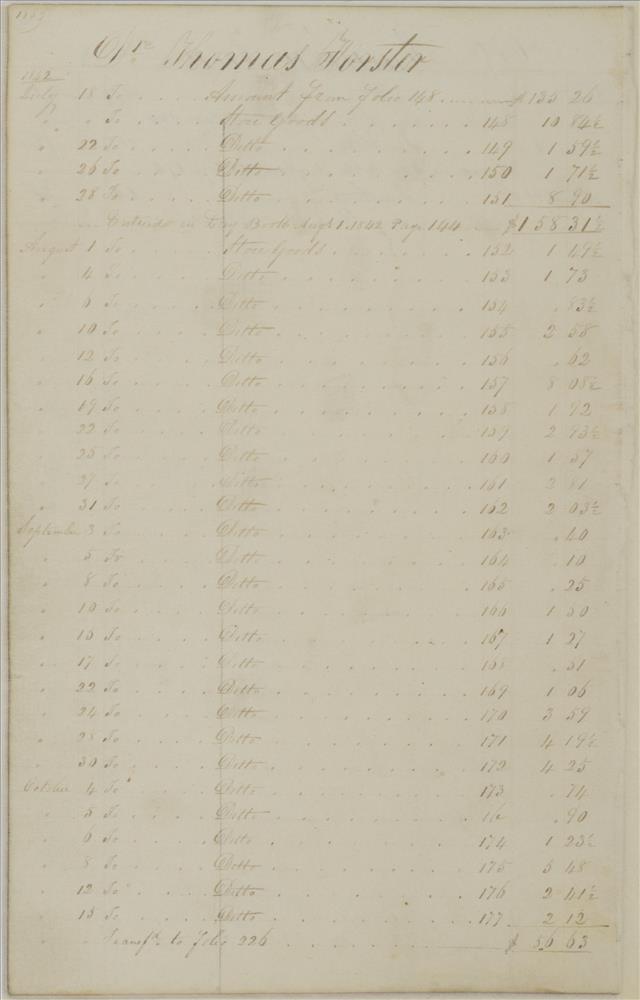 Dr. Thomas Forster
1842
July 18 To Amount from Folio 148 $135 26
" " To Store Goods 148 10 84½
" 22 To Ditto 149 1 59½
" 26 To Ditto 150 1 71½
" 28 To Ditto 151 8 90
Entered in Day Book Augt 1. 1842 Page 144 $158 31½
August 1 To Store Goods 152 1 49½
" 4 To Ditto 153 1 73
" 6 To Ditto 154 .83½
" 10 To Ditto 155 2 58
" 12 To Ditto 156 .62
" 16 To Ditto 157 8 08½
" 19 To Ditto 158 1 92
" 22 To Ditto 159 2 93½
" 25 To Ditto 160 1 57
" 27 To Ditto 161 2 81
" 31 To Ditto 162 2 03½
September 3 To Ditto 163 .40
" 5 To Ditto 164 .10
" 8 To Ditto 165 .25
" 10 To Ditto 166 1 50
" 15 To Ditto 167 1 27
" 17 To Ditto 168 .51
" 22 To Ditto 169 1 06
" 24 To Ditto 170 3 59
" 28 To Ditto 171 4 19½
" 30 To Ditto 172 4 25
October 4 To Ditto 173 .74
" 5 To Ditto .90
" 6 To Ditto 174 1 23½
" 8 To Ditto 175 5 48
" 12 To Ditto 176 2 41½
" 15 To Ditto 177 2 12
Transfd to Folio 226 $ 56 63